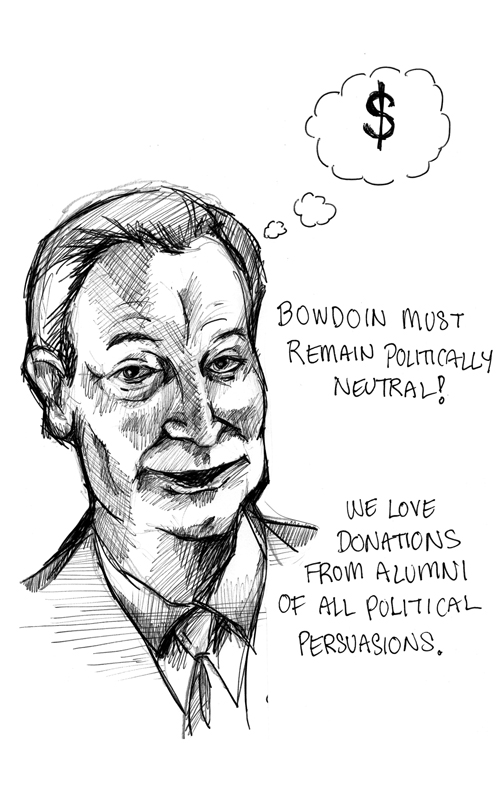 $
BOWDOIN MUST
REMAIN POLITICALLY
NEUTRAL!
WE LOVE
DONATIONS
FROM ALUMNI
OF ALL POLITICAL
PERSUASIONS.